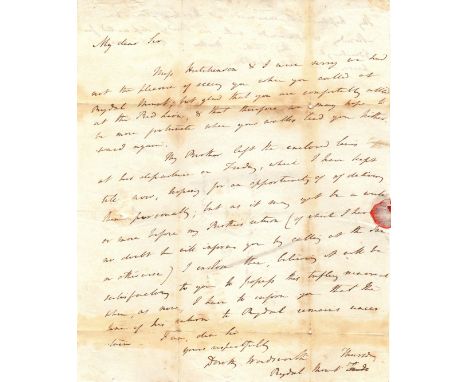 My dear Sir,
Miss Hutchinson & I were sorry we had
not the pleasure of seeing you when you called at
Rydal Mount, but glad that you are comfortably
at the Red Lion, & that therefore we may hope to
be more fortunate when your walks lead you hither-
ward again.
My Brother left the enclosed lines
at his departure on Tuesday, which I have kept
till now, hoping for an opportunity of delivering
them personally; but as it may yet be a week
or more before my Brother's return (of which I have
no doubt he will inform you by calling at the Inn
or otherwise) I enclose them, believing it will be
satisfactory to you to possess this trifling
, as now, I have to inform you that the
time of his return to Rydal remains uncer-
tain. I am, dear Sir
yours respectfully
Dorothy Wordsworth
Thursday
Rydal Mount